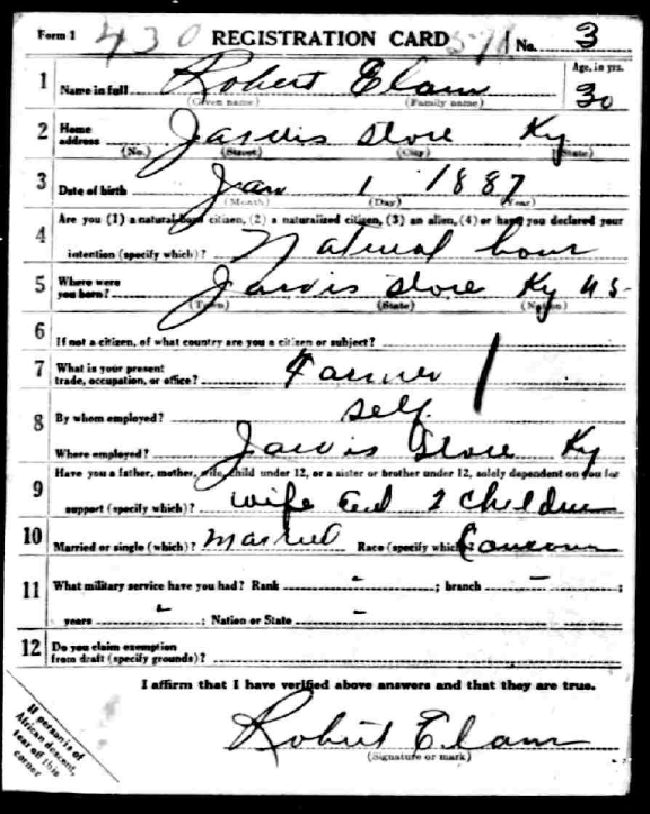 Form 1 430 REGISTRATION CARD No. 3
1 Name in full Robert Elam Age, in yrs. 30
(Given name) (Family name)
2 Home address Jarvis Store Ky
(No.) (Street) (City) (State)
3 Date of birth Jan 1 1887
(Month) (Day) (Year)
4 Are you (1) a natural-born citizen, (2) a naturalized citizen, (3) an alien, (4) or have you declared your
intention (specify which)? Natural born
5 Where were you born? Jarvis Store Ky US
(Town) (State) (Nation)
6 If not a citizen, of what country are you a citizen or subject?
7 What is your present trade, occupation, or office? Farmer
8 By whom employed? self
Where employed? Jarvis Store Ky
9 Have you a father, mother, wife, child under 12, or a sister or brother under 12, solely dependent on you for
support (specify which)? wife and 2 children
10 Married or single (which)? Married Race (specify which)?
11 What military service have you had? Rank - ; branch - ;
years - ; Nation or State -
12 Do you claim exemption
from draft (specify grounds)?
I affirm that I have verified above answers and that they are true.
Robert Elam
(Signature or mark)
If person is of
African descent,
tear off this
corner